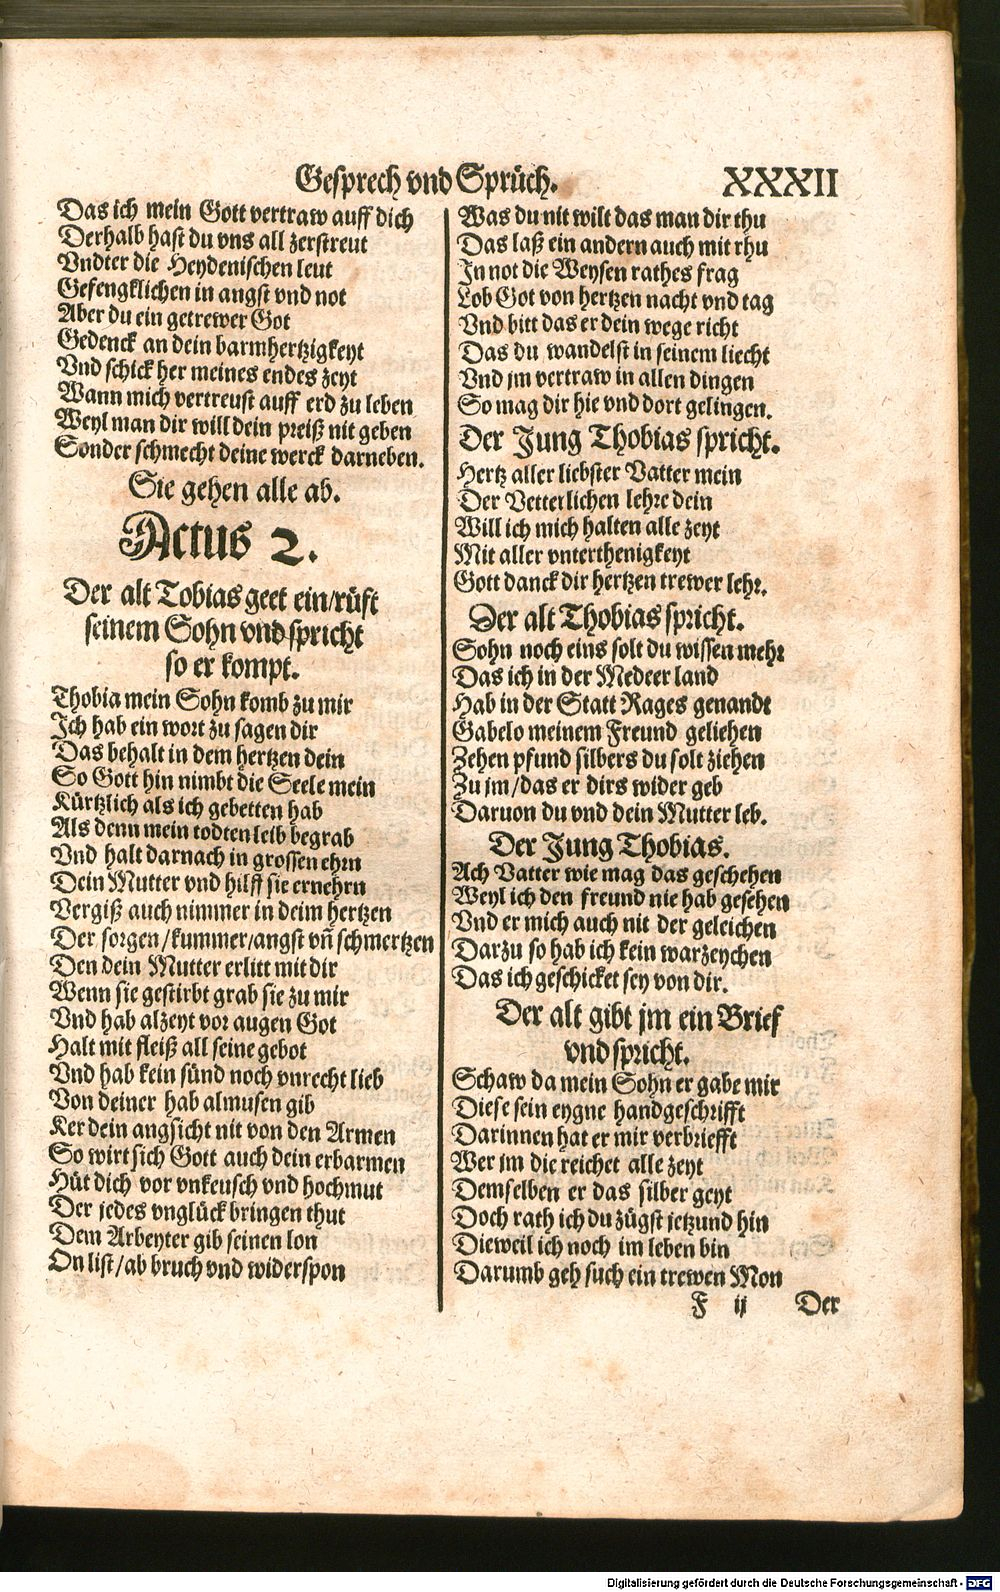 Gesprech vnd Sprüch. XXXII
Das ich mein Gott vertraw auff dich
Derhalb hast du vns all zerstreut
Vndter die Heydenischen leut
Gefengklichen in angst vnd not
Aber du ein getrewer Got
Gedenck an dein barmhertzigkeyt
Vnd schick her meines endes zeyt
Wann mich vertreust auff erd zu leben
Weyl man dir will dein preiß nit geben
Sonder schmecht deine werck darneben.
Sie gehen alle ab.
Actus 2.
Der alt Tobias geet ein/rüft
seinem Sohn vnd spricht
so er kompt.
Thobia mein Sohn komb zu mir
Ich hab ein wort zu sagen dir
Das behalt in dem hertzen dein
So Gott hin nimbt die Seele mein
Kürtzlich als ich gebetten hab
Als denn mein todten leib begrab
Vnd halt darnach in grossen ehrn
Dein Mutter vnd hilff sie ernehrn
Vergiß auch nimmer in deim hertzen
Der sorgen/kummer/angst vñ schmertzen
Den dein Mutter erlitt mit dir
Wenn sie gestirbt grab sie zu mir
Vnd hab alzeyt vor augen Got
Halt mit fleiß all seine gebot
Vnd hab kein sünd noch vnrecht lieb
Von deiner hab almusen gib
Ker dein angsicht nit von den Armen
So wirt sich Gott auch dein erbarmen
Hüt dich vor vnkeusch vnd hochmut
Der jedes vnglück bringen thut
Dem Arbeyter gib seinen lon
On list/ab bruch vnd widerspon
Was du nit wilt das man dir thu
Das laß ein andern auch mit rhu
In not die Weysen rathes frag
Lob Got von hertzen nacht vnd tag
Vnd bitt das er dein wege richt
Das du wandelst in seinem liecht
Vnd jm vertraw in allen dingen
So mag dir hie vnd dort gelingen.
Der Jung Thobias spricht.
Hertz aller liebster Vatter mein
Der Vetterlichen lehre dein
Will ich mich halten alle zeyt
Mit aller vnterthenigkeyt
Gott danck dir hertzen trewer lehr.
Der alt Thobias spricht.
Sohn noch eins solt du wissen mehr
Das ich in der Medeer land
Hab in der Statt Rages genandt
Gabelo meinem Freund geliehen
Zehen pfund silbers du solt ziehen
Zu jm/das er dirs wider geb
Daruon du vnd dein Mutter leb.
Der Jung Thobias.
Ach Vatter wie mag das geschehen
Weyl ich den freund nie hab gesehen
Vnd er mich auch nit der geleichen
Darzu so hab ich kein warzeychen
Das ich geschicket sey von dir.
Der alt gibt jm ein Brief
vnd spricht.
Schaw da mein Sohn er gabe mir
Diese sein eygne handgeschrifft
Darinnen hat er mir verbriefft
Wer jm die reichet alle zeyt
Demselben er das silber geyt
Doch rath ich du zügst jetzund hin
Dieweil ich noch im leben bin
Darumb geh such ein trewen Mon
F ij Der
Digitalisierung gefördert durch die Deutsche Forschungsgemeinschaft - DFG